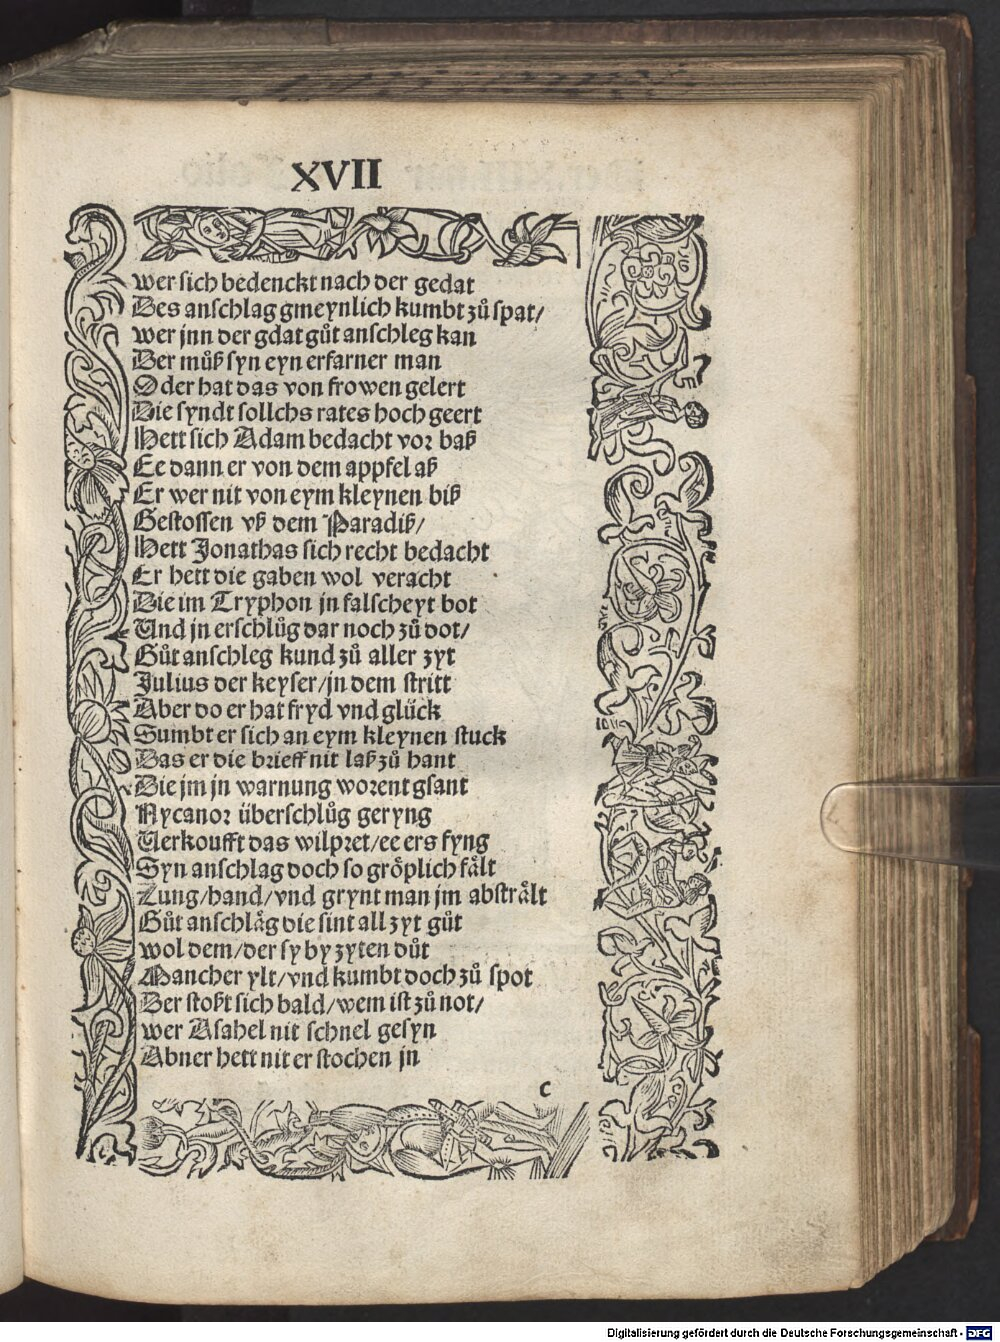 XVII
wer sich bedenckt nach der gedat
Des anschlag gmeynlich kumbt zuͦ spat/
wer jnn der gdat guͦt anschleg kan
Der muͦß syn eyn erfarner man
Oder hat das von frowen gelert
Die syndt sollchs rates hoch geert
Hett sich Adam bedacht vor baß
Ee dann er von dem appfel aß
Er wer nit von eym kleynen biß
Gestossen vß dem Paradiß/
Hett Jonathas sich recht bedacht
Er hett die gaben wol veracht
Die im Tryphon jn falscheyt bot
Und jn erschluͦg dar noch zuͦ dot/
Guͦt anschleg kund zuͦ aller zyt
Julius der keyser/jn dem stritt
Aber do er hat fryd vnd glück
Sumbt er sich an eym kleynen stuck
Das er die brieff nit laß zuͦ hant
Die jm jn warnung worent gsant
Nycanor überschluͦg geryng
Uerkoufft das wilpret/ee ers fyng
Syn anschlag doch so groͤplich faͤlt
Zung/hand/vnd grynt man jm abstraͤlt
Guͦt anschlaͤg die sint all zyt guͦt
wol dem/der sy by zyten duͦt
Mancher ylt/vnd kumbt doch zuͦ spot
Der stoßt sich bald/wem ist zuͦ not/
wer Asahel nit schnel gesyn
Abner hett nit er stochen jn
c
Digitalisierung gefördert durch die Deutsche Forschungsgemeinschaft - DFG